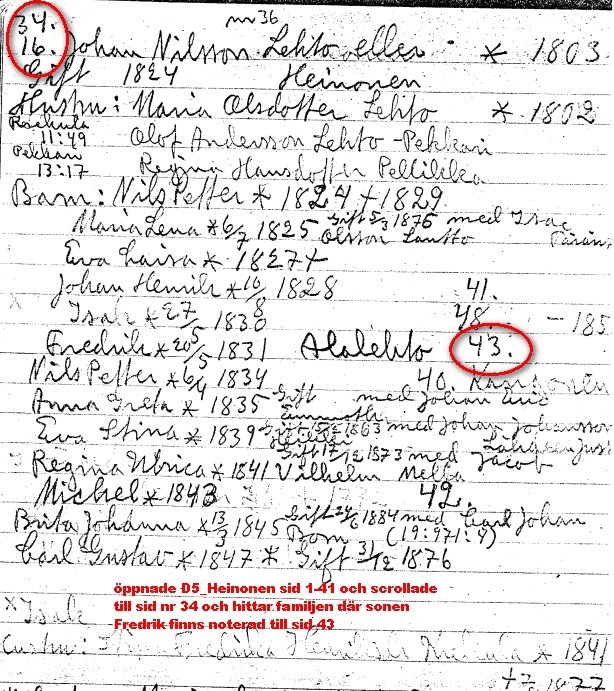 34. nr 36
16. Johan Nilsson Lehto eller * 1803
Gift 1824 Heinonen
Hustru: Maria Olsdotter Lehto * 1802
11:49 Olof Andersson Lehto-Pekkari
Pekkari
13:17 Regina Hansdotter Pellikka
Barn: Nils Petter * 1824 + 1829
Maria Lena * 6/7 1825 Gift 5/3 1876 med Isac
Olsson Lantto
Eva Caisa * 1827 +
Johan Henrik * 16/8 1828 41.
Isak * 27/ 1830 48. - 185
Fredrik * 20/5 1831 Alalehto 43.
Nils Petter * 6/4 1834 40.
Anna Greta * 1835 Gift med Johan Eric
Eva Stina * 1839 Gift 1863 med Johan Johansson
Gift 1873 med Jacob
Regina Ulrica * 1841 Vilhelm Mella
Michel * 1843 42.
Brita Johanna * 13/3 1845 Gift 24/6 1884 med Carl Johan
Barn (19:971:4)
Carl Gustav * 1847 * Gift 31/12 1876
öppnade D5_Heinonen sid 1-41 och scrollade
till sid nr 34 och hittar familjen där sonen
Fredrik finns noterad till sid 43
x Isak
Fredrika * 1841
1877